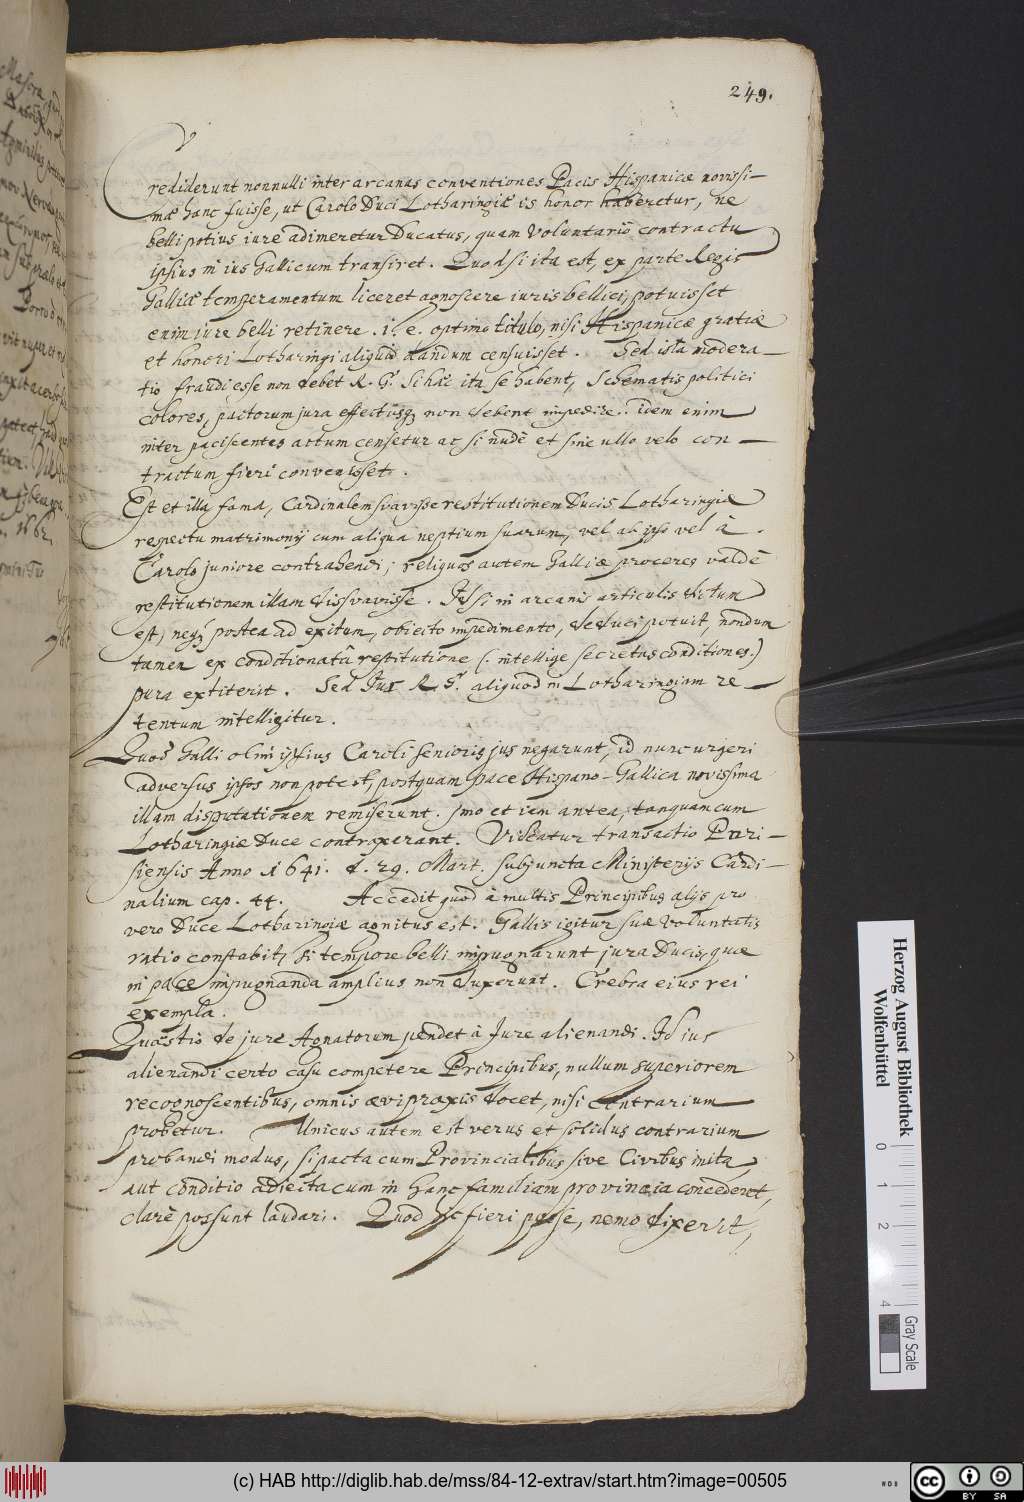 249.
Crediderunt nonnulli inter arcanas conventiones Pacis Hispanicæ novissi-
mæ hanc fuisse, ut Carolo Duci Lotharingiæ is honor haberetur, ne
belli potius iure adimeretur Ducatus, quam voluntariō contractu
ipsius in ius Gallicum transiret. Quod si ita est, ex parte Regis
Galliæ temperamentum liceret agnoscere iuris bellici, potuisset
enim iure belli retinere .i.e. optimo titulo, nisi Hispanicæ gratiæ
et honori Lotharingi aliquid dandum censuisset. Sed ista modera-
tio fraudi esse non debet R. G. Si hæc ita se habent, Schematis politici
colores, pactorum jura effectusq́ue non debent impedire. idem enim
inter paciscentes actum censetur ac si nudè et sine ullo velo con-
tractum fieri convenisset.
Est et illa fama, Cardinalem suavisse restitutionem Ducis Lotharingiæ
respectu matrimonij cum aliqua neptium suarum, vel ab ipso vel à
Carolo juniore contrahendi; reliquos autem Galliæ proceres valdè
restitutionem illam dissuavisse. Id si in arcanis articulis dictum
est, neq́ue postea ad exitum, obiecto impedimento, deduci potuit, nondum
tamen ex conditionatâ restitutione (. intellige secretas conditiones.)
pura extiterit. Sed Jus R. G. aliquod in Lotharingiam re-
tentum intelligitur.
Quod Galli olim ipsius Caroli senioris jus negarunt, id nunc urgeri
adversus ipsos non potest, postquam pace Hispano-Gallica novissima
illam disputationem remiserunt. Imo et iam antea, tanquam cum
Lotharingiæ Duce contraxerant. Videatur transactio Pari-
siensis Anno 1641. d. 29. Mart. subjuncta Ministerijs Cardi-
nalium cap. 44. Accedit quod à multis Principibus alijs pro
vero Duce Lotharingiæ agnitus est. Gallis igitur suæ voluntatis
ratio constabit, si tempore belli impugnarunt jura Ducis, quæ
in pace impugnanda amplius non duxerunt. Crebra eius rei
exempla.
Quæstio de jure Agnatorum pendet à Jure alienandi. Id ius
alienandi certo casu competere Principibus, nullum superiorem
recognoscentibus, omnis ævi praxis docet, nisi contrarium
probetur. Unicus autem est verus et solidus contrarium
probandi modus, si pacta cum Provincialibus sive Civibus inita,
aut conditio adiecta cum in hanc familiam provincia concederet,
clarè possunt laudari. Quod hic fieri posse, nemo dixerit,
Herzog August Bibliothek
Wolfenbüttel
0 1 2 4
Gray Scale
(c) HAB http://diglib.hab.de/mss/84-12-extrav/start.htm?image=00505
cc BY SA